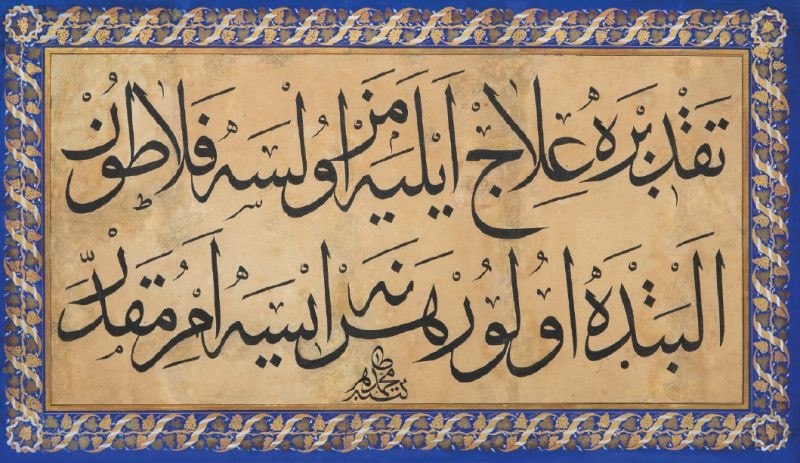 تقديره علاج ايليه مز اولسه فلاطون
البتده اولور هر نه ايسه امر مقدر
كتبه محمد طاهر